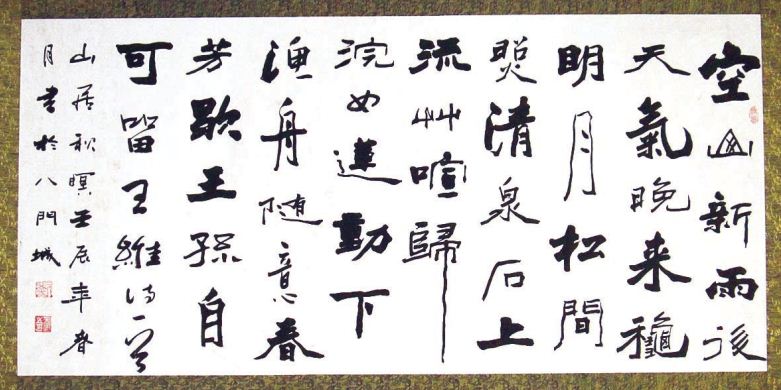 空山新雨後
天氣晚来龝
明月松間
照清泉石上
流竹喧歸
浣女蓮動下
漁舟随意春
芳歇王孫自
可留王維诗一首
山居秋暝壬辰年春
月書於八門城